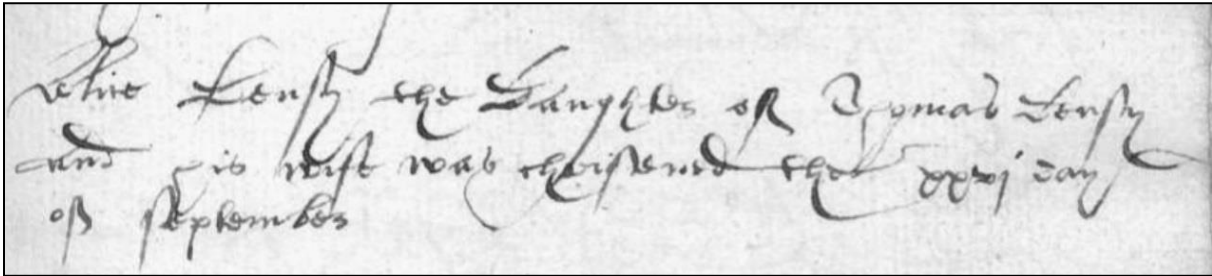 Alice Kensy the daughter off Thomas Kensy
and his wife was cheistened the xxvj day
off september